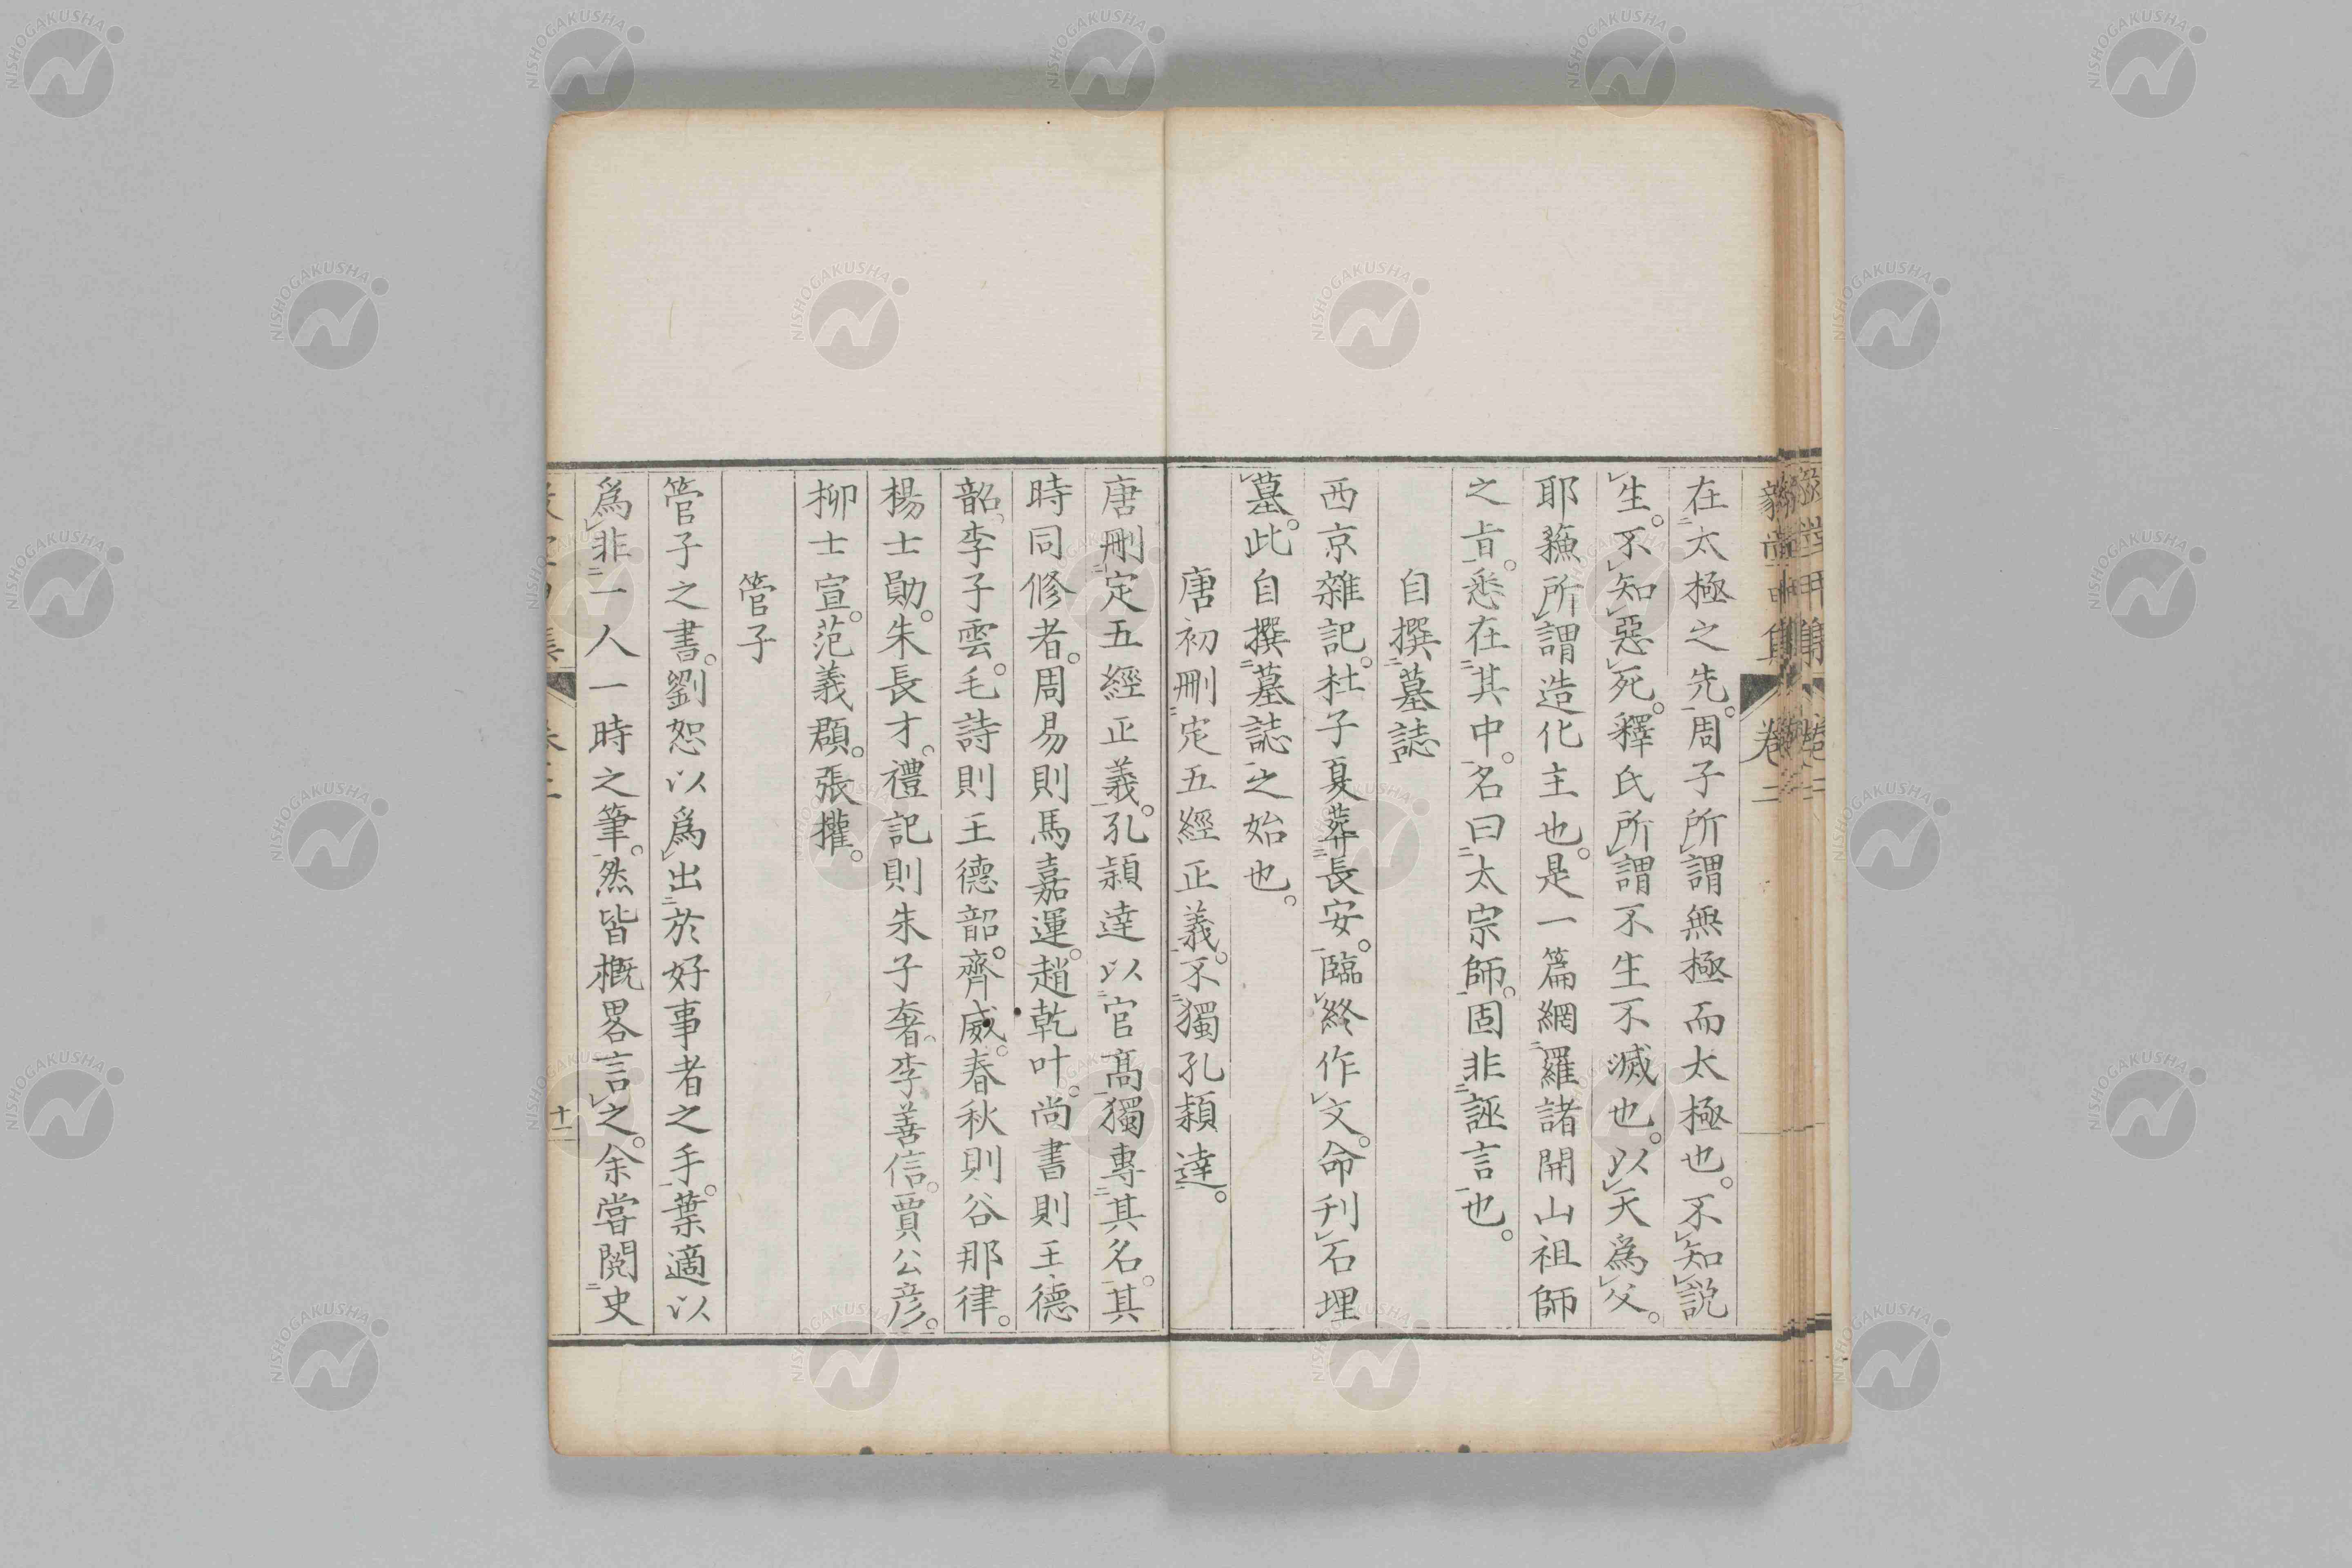 在太極之先。周子所謂無極而太極也。不知説
生。不知惡死。釋氏所謂不生不滅也。以天爲父。
耶穌所謂造化主也。是一篇網羅諸開山祖師
之旨。悉在其中。名曰太宗師。固非誣言也。
自撰墓誌
西京雜記。杜子夏葬長安。臨終作文。命刊石埋
墓。此自撰墓誌之始也。
唐初刪定五經正義。不獨孔穎達。
唐刪定五經正義。孔穎達以官髙獨專其名。其
時同修者。周易則馬嘉運。趙乾叶。尚書則王德
韶。李子雲。毛詩則王德韶。齊威。春秋則谷那律。
楊士勛。朱長才。禮記則朱子奢。李善信。賈公彦。
柳士宣。范義頵。張權。
管子
管子之書。劉恕以爲出於好事者之手。葉適以
爲非一人一時之筆。然皆概畧言之。余嘗閱史
卷二
十二
NISHOGAKUSHA